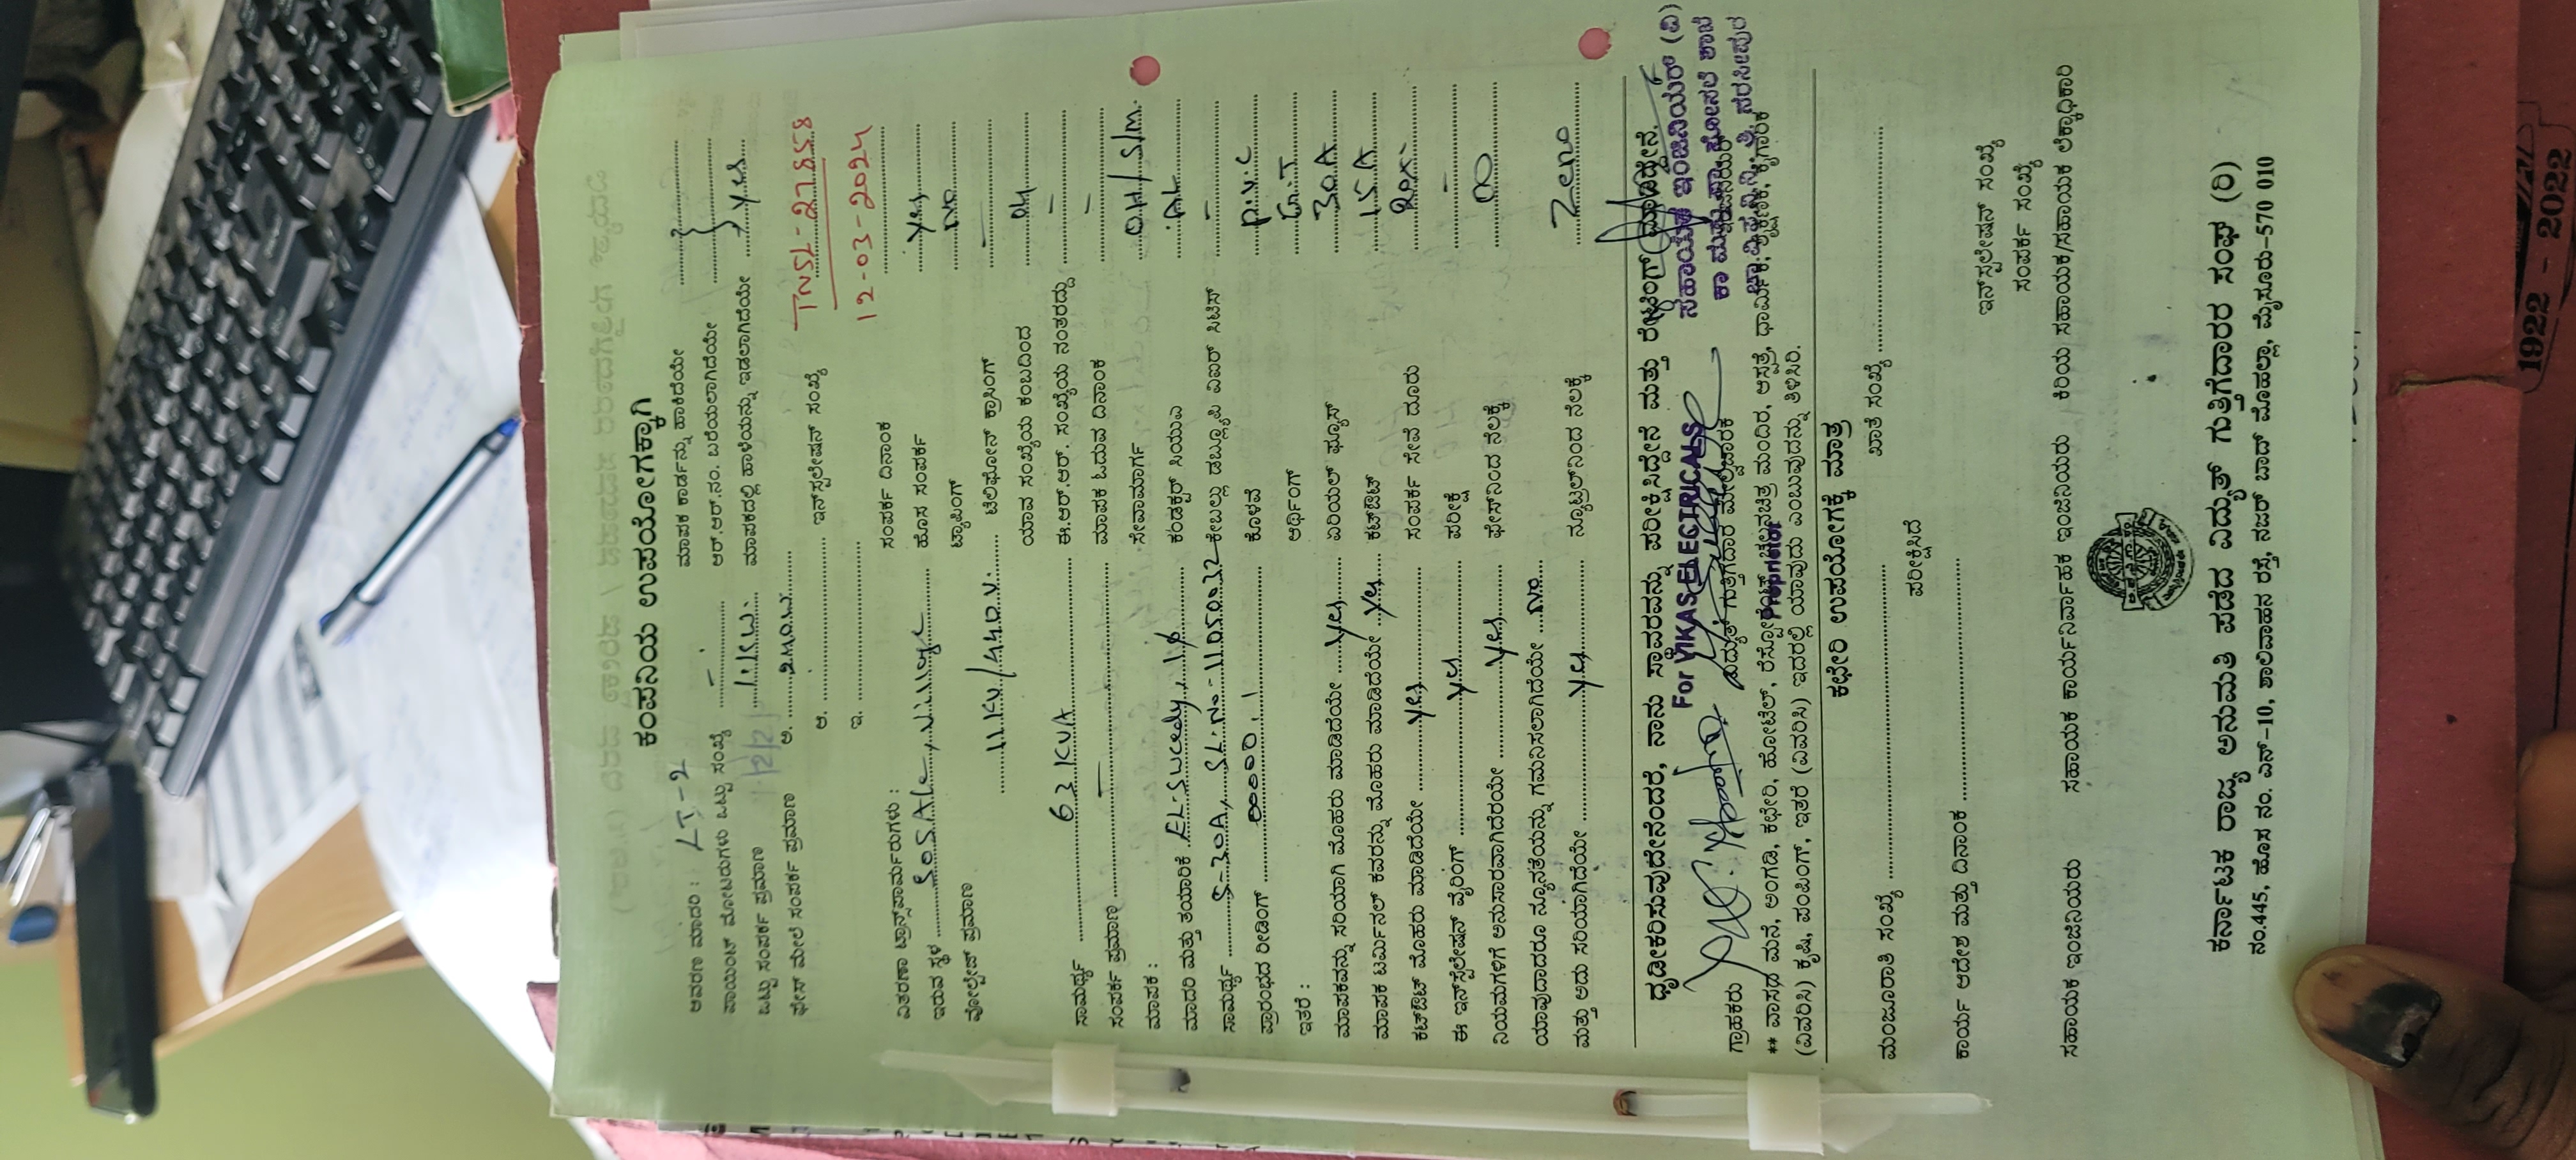 ಕಂಪನಿಯ ಉಪಯೋಗಕ್ಕಾಗಿ
ಆವರಣ ಮಾದರಿ : LT-2 ಮಾಪಕ ಕಾರ್ಡನ್ನು ಹಾಕಿದೆಯೇ
ಪಾಯಿಂಟ್ ಮೋಟರುಗಳು ಒಟ್ಟು ಸಂಖ್ಯೆ - ಆರ್.ಆರ್.ನಂ. ಬರೆಯಲಾಗಿದೆಯೇ
ಒಟ್ಟು ಸಂಪರ್ಕ ಪ್ರಮಾಣ 1 KW. ಮಾಪಕದಲ್ಲಿ ಹಾಳೆಯನ್ನು ಇಡಲಾಗಿದೆಯೇ yes
ಫೇಸ್ ಮೇಲೆ ಸಂಪರ್ಕ ಪ್ರಮಾಣ ಅ.
ಆ. ಇನ್‌ಸ್ಟಲೇಷನ್ ಸಂಖ್ಯೆ TNSL-27858
ಇ. 12-03-2024
ಸಂಪರ್ಕ ದಿನಾಂಕ
ವಿತರಣಾ ಟ್ರಾನ್ಸ್‌ಫಾರ್ಮರುಗಳು : ಹೊಸ ಸಂಪರ್ಕ Yes
ಇರುವ ಸ್ಥಳ SOSALE, Village ಟ್ಯಾಪಿಂಗ್ NO
ವೋಲ್ಟೇಜ್ ಪ್ರಮಾಣ 11KV/440V. ಟೆಲಿಫೋನ್ ಕ್ರಾಸಿಂಗ್ —
ಯಾವ ಸಂಖ್ಯೆಯ ಕಂಬದಿಂದ
ಸಾಮರ್ಥ್ಯ 63 KVA ಈ.ಆರ್.ಆರ್. ಸಂಖ್ಯೆಯ ನಂತರದ್ದು -
ಸಂಪರ್ಕ ಪ್ರಮಾಣ — ಮಾಪಕ ಓದುವ ದಿನಾಂಕ -
ಮಾಪಕ : ಸೇವಾಮಾರ್ಗ OH/S/M.
ಮಾದರಿ ಮತ್ತು ತಯಾರಿಕೆ EL-Sweedy, 1φ ಕಂಡಕ್ಟರ್ ಸಿಯುಎ AL
ಸಾಮರ್ಥ್ಯ 5-30A, SL.No-11050032 ಕೇಬಲ್ಲು ಡಬ್ಲ್ಯೂಪಿ ವಿಐಆರ್ ಸಿಟಿಎಸ್ -
ಪ್ರಾರಂಭದ ರೀಡಿಂಗ್ 00000.1 ಕೊಳವೆ P.V.C
ಇತರೆ : ಅರ್ಥಿಂಗ್ G.I
ಮಾಪಕವನ್ನು ಸರಿಯಾಗಿ ಮೊಹರು ಮಾಡಿದೆಯೇ Yes ಏರಿಯಲ್ ಫ್ಯೂಸ್ 30A
ಮಾಪಕ ಟರ್ಮಿನಲ್ ಕವರನ್ನು ಮೊಹರು ಮಾಡಿದೆಯೇ Yes ಕಟ್‌ಔಟ್ 15A
ಕಟ್‌ಔಟ್ ಮೊಹರು ಮಾಡಿದೆಯೇ yes ಸಂಪರ್ಕ ಸೇವೆ ದೂರು
ಈ ಇನ್‌ಸ್ಟಲೇಷನ್ ವೈರಿಂಗ್ yes ಪರೀಕ್ಷೆ -
ನಿಯಮಗಳಿಗೆ ಅನುಸಾರವಾಗಿದೆಯೇ Yes ಫೇಸ್‌ನಿಂದ ನೆಲಕ್ಕೆ ∞
ಯಾವುದಾದರೂ ನ್ಯೂನತೆಯನ್ನು ಗಮನಿಸಲಾಗಿದೆಯೇ No
ಮತ್ತು ಅದು ಸರಿಯಾಗಿದೆಯೇ Yes ನ್ಯೂಟ್ರಲ್‌ನಿಂದ ನೆಲಕ್ಕೆ Zero
ದೃಢೀಕರಿಸುವುದೇನೆಂದರೆ, ನಾನು ಸ್ಥಾವರವನ್ನು ಪರೀಕ್ಷಿಸಿದ್ದೇನೆ ಮತ್ತು ರೇಟಿಂಗ್ ಮಾಡಿದ್ದೇನೆ.
For VIKAS ELECTRICALS ಸಹಾಯಕ ಇಂಜಿನಿಯರ್ (ವಿ)
ಗ್ರಾಹಕರು ವಿದ್ಯುತ್ ಗುತ್ತಿಗೆದಾರ ಮೇಲ್ವಿಚಾರಕ
Proprietor
** ವಾಸದ ಮನೆ, ಅಂಗಡಿ, ಕಛೇರಿ, ಹೋಟೆಲ್, ರೆಸ್ಟೋರೆಂಟ್, ಚಲನಚಿತ್ರ ಮಂದಿರ, ಆಸ್ಪತ್ರೆ, ಧಾರ್ಮಿಕ, ಶೈಕ್ಷಣಿಕ, ಕೈಗಾರಿಕೆ
(ವಿವರಿಸಿ) ಕೃಷಿ, ಪಂಪಿಂಗ್, ಇತರೆ (ವಿವರಿಸಿ) ಇದರಲ್ಲಿ ಯಾವುದು ಎಂಬುವುದನ್ನು ತಿಳಿಸಿರಿ.
ಕಛೇರಿ ಉಪಯೋಗಕ್ಕೆ ಮಾತ್ರ
ಮಂಜೂರಾತಿ ಸಂಖ್ಯೆ ಖಾತೆ ಸಂಖ್ಯೆ
ಪರೀಕ್ಷಿಸಿದೆ
ಕಾರ್ಯ ಆದೇಶ ಮತ್ತು ದಿನಾಂಕ
ಇನ್‌ಸ್ಟಲೇಷನ್ ಸಂಖ್ಯೆ
ಸಂಪರ್ಕ ಸಂಖ್ಯೆ
ಸಹಾಯಕ ಇಂಜಿನಿಯರು ಸಹಾಯಕ ಕಾರ್ಯನಿರ್ವಾಹಕ ಇಂಜಿನಿಯರು ಕಿರಿಯ ಸಹಾಯಕ/ಸಹಾಯಕ ಲೆಕ್ಕಾಧಿಕಾರಿ
ಕರ್ನಾಟಕ ರಾಜ್ಯ ಅನುಮತಿ ಪಡೆದ ವಿದ್ಯುತ್ ಗುತ್ತಿಗೆದಾರರ ಸಂಘ (ರಿ)
ನಂ.445, ಹೊಸ ನಂ. ಎನ್-10, ಶಾಲಿವಾಹನ ರಸ್ತೆ, ನಜರ್ ಬಾದ್ ಮೊಹಲ್ಲಾ, ಮೈಸೂರು-570 010
1922 - 2022